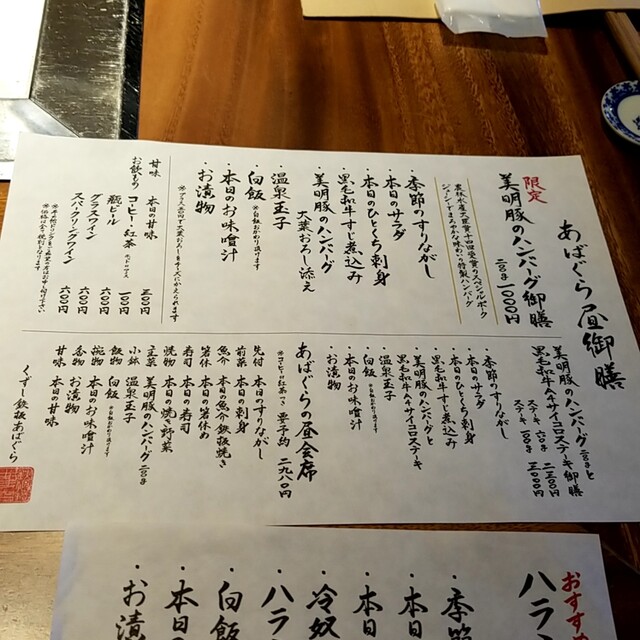 あばぐら昼御膳
限定
美明豚のハンバーグ御膳
二〇〇g 一〇〇〇円
農林水産大臣賞十四回受賞のスペシャルポーク
ジューシーでまろやかな味わいの特製ハンバーグ
・季節のすりながし
・本日のサラダ
・本日のひとくち刺身
・黒毛和牛すじ煮込み
・美明豚のハンバーグ
大葉おろし添え
・温泉玉子
・白飯
・本日のお味噌汁
・お漬物
甘味 本日の甘味 三〇〇円
お飲もの コーヒー・紅茶 一〇〇円
瓶ビール 六〇〇円
グラスワイン 六〇〇円
スパークリングワイン 六〇〇円
美明豚のハンバーグ 二〇〇gと
黒毛和牛A4サイコロステーキ御膳
・季節のすりながし
・本日のサラダ
・本日のひとくち刺身
・黒毛和牛すじ煮込み
・美明豚のハンバーグと
黒毛和牛A4サイコロステーキ
・温泉玉子
・白飯
・本日のお味噌汁
・お漬物
あばぐらの昼会席
要予約 二九八〇円
先付 本日のすりながし
前菜 本日の刺身
魚介 本日の魚介鉄板焼き
箸休 本日の箸休め
寿司 本日の寿司
焼物 本日の焼き野菜
主菜 美明豚のハンバーグ 二〇〇g
小鉢 温泉玉子
飯物 白飯
椀物 本日のお味噌汁
香物 お漬物
甘味 本日の甘味
くずし鉄板あばぐら
おすすめ
ハラ
・季節
・本
・本日
・冷奴
・ハラ
・白飯
・本日の
・お漬